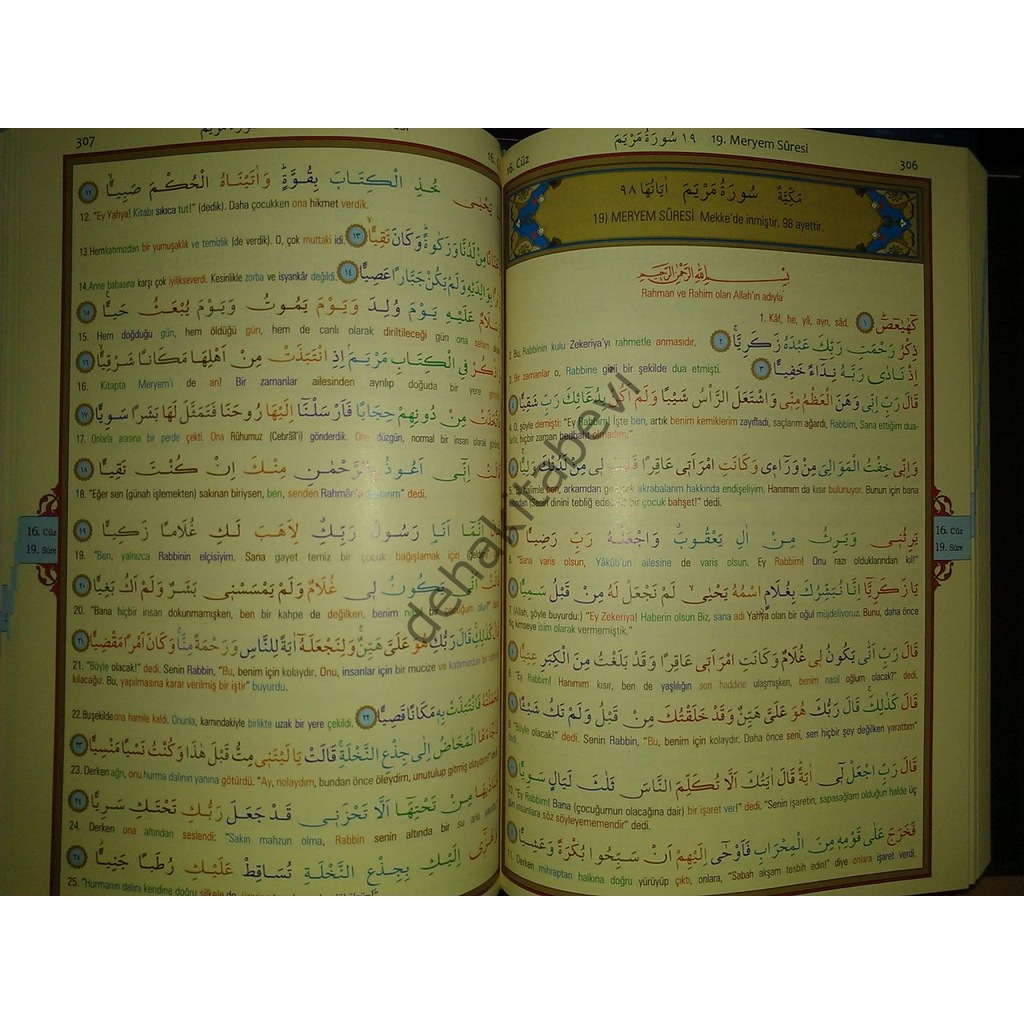 ١٩ سُورَةُ مَرْيَمَ 19. Meryem Sûresi
16. Cüz
306
سُورَةُ مَرْيَمَ مَكِّيَّةٌ اٰيَاتُهَا ٩٨
19) MERYEM SÛRESİ Mekke'de inmiştir. 98 ayettir.
بِسْمِ اللّٰهِ الرَّحْمٰنِ الرَّحِيمِ
Rahman ve Rahim olan Allah'ın adıyla
كٓهٰيٰعٓصٓ ١
1. Kâf, he, yâ, ayn, sâd.
ذِكْرُ رَحْمَتِ رَبِّكَ عَبْدَهُ زَكَرِيَّا ٢
2. Bu, Rabbinin kulu Zekeriya'yı rahmetle anmasıdır.
اِذْ نَادٰى رَبَّهُ نِدَٓاءً خَفِيًّا ٣
3. Bir zamanlar o, Rabbine gizli bir şekilde dua etmişti.
قَالَ رَبِّ اِنّ۪ي وَهَنَ الْعَظْمُ مِنّ۪ي وَاشْتَعَلَ الرَّأْسُ شَيْبًا وَلَمْ اَكُنْ بِدُعَٓائِكَ رَبِّ شَقِيًّا
4. O, şöyle demişti: "Ey Rabbim! İşte ben, artık benim kemiklerim zayıfladı, saçlarım ağardı, Rabbim, Sana ettiğim dua-
larla, hiçbir zaman bedbaht olmadım."
وَاِنّ۪ي خِفْتُ الْمَوَالِيَ مِنْ وَرَٓاء۪ي وَكَانَتِ امْرَاَت۪ي عَاقِرًا فَهَبْ ل۪ي مِنْ لَدُنْكَ وَلِيًّا
ben, arkamdan gelecek akrabalarım hakkında endişeliyim. Hanımım da kısır bulunuyor. Bunun için bana
bir çocuk bahşet!" dedi.
يَرِثُن۪ي وَيَرِثُ مِنْ اٰلِ يَعْقُوبَ وَاجْعَلْهُ رَبِّ رَضِيًّا
6. "Bana varis olsun, Yâkûb'un ailesine de varis olsun. Ey Rabbim! Onu razı olduklarından kıl!"
يَا زَكَرِيَّٓا اِنَّا نُبَشِّرُكَ بِغُلَامٍ اسْمُهُ يَحْيٰى لَمْ نَجْعَلْ لَهُ مِنْ قَبْلُ سَمِيًّا
7. (Allah, şöyle buyurdu:) "Ey Zekeriya! Haberin olsun Biz, sana adı Yahya olan bir oğul müjdeliyoruz. Bunu, daha önce
hiç kimseye isim olarak vermemiştik."
قَالَ رَبِّ اَنّٰى يَكُونُ ل۪ي غُلَامٌ وَكَانَتِ امْرَاَت۪ي عَاقِرًا وَقَدْ بَلَغْتُ مِنَ الْكِبَرِ عِتِيًّا
8. "Ey Rabbim! Hanımım kısır, ben de yaşlılığın son haddine ulaşmışken, benim nasıl oğlum olacak?" dedi.
قَالَ كَذٰلِكَ قَالَ رَبُّكَ هُوَ عَلَيَّ هَيِّنٌ وَقَدْ خَلَقْتُكَ مِنْ قَبْلُ وَلَمْ تَكُ شَيْـًٔا
9. "Böyle olacak!" dedi. Senin Rabbin, "Bu, benim için kolaydır. Daha önce seni, sen hiçbir şey değilken yarattım"
dedi.
قَالَ رَبِّ اجْعَلْ ل۪ٓي اٰيَةً قَالَ اٰيَتُكَ اَلَّا تُكَلِّمَ النَّاسَ ثَلٰثَ لَيَالٍ سَوِيًّا
10. "Ey Rabbim! Bana (çocuğumun olacağına dair) bir işaret ver!" dedi. "Senin işaretin, sapasağlam olduğun halde üç
gün insanlara söz söyleyememendir" dedi.
فَخَرَجَ عَلٰى قَوْمِه۪ مِنَ الْمِحْرَابِ فَاَوْحٰٓى اِلَيْهِمْ اَنْ سَبِّحُوا بُكْرَةً وَعَشِيًّا
11. Derken mihraptan halkına doğru yürüyüp çıktı, onlara, "Sabah akşam tesbih edin!" diye onlara işaret verdi.
16. Cüz
19. Sûre
307
يَحْيٰى خُذِ الْكِتَابَ بِقُوَّةٍ وَاٰتَيْنَاهُ الْحُكْمَ صَبِيًّا ١٢
12. "Ey Yahya! Kitabı sıkıca tut!" (dedik). Daha çocukken ona hikmet verdik.
مِنْ لَدُنَّا وَزَكٰوةً وَكَانَ تَقِيًّا ١٣
13. Hem katımızdan bir yumuşaklık ve temizlik (de verdik). O, çok muttaki idi.
بِوَالِدَيْهِ وَلَمْ يَكُنْ جَبَّارًا عَصِيًّا ١٤
14. Anne babasına karşı çok iyilikseverdi. Kesinlikle zorba ve isyankâr değildi.
عَلَيْهِ يَوْمَ وُلِدَ وَيَوْمَ يَمُوتُ وَيَوْمَ يُبْعَثُ حَيًّا ١٥
15. Hem doğduğu gün, hem öldüğü gün, hem de canlı olarak diriltileceği gün ona selam
فِي الْكِتَابِ مَرْيَمَ اِذِ انْتَبَذَتْ مِنْ اَهْلِهَا مَكَانًا شَرْقِيًّا ١٦
16. Kitapta Meryem'i de an! Bir zamanlar ailesinden ayrılıp doğuda bir yere
مِنْ دُونِهِمْ حِجَابًا فَاَرْسَلْنَٓا اِلَيْهَا رُوحَنَا فَتَمَثَّلَ لَهَا بَشَرًا سَوِيًّا ١٧
17. Onlarla arasına bir perde çekti. Ona Rûhumuz (Cebrâîl'i) gönderdik. Ona düzgün, normal bir insan olarak
اِنّ۪ٓي اَعُوذُ بِالرَّحْمٰنِ مِنْكَ اِنْ كُنْتَ تَقِيًّا ١٨
18. "Eğer sen (günah işlemekten) sakınan biriysen, ben, senden Rahmân'a dedi.
اِنَّمَٓا اَنَا رَسُولُ رَبِّكِ لِاَهَبَ لَكِ غُلَامًا زَكِيًّا ١٩
19. "Ben, yalnızca Rabbinin elçisiyim. Sana gayet temiz bir çocuk bağışlamak için
اَنّٰى يَكُونُ ل۪ي غُلَامٌ وَلَمْ يَمْسَسْن۪ي بَشَرٌ وَلَمْ اَكُ بَغِيًّا ٢٠
20. "Bana hiçbir insan dokunmamışken, ben bir kahpe de değilken, benim
كَذٰلِكِ قَالَ رَبُّكِ هُوَ عَلَيَّ هَيِّنٌ وَلِنَجْعَلَهُٓ اٰيَةً لِلنَّاسِ وَرَحْمَةً مِنَّا وَكَانَ اَمْرًا مَقْضِيًّا ٢١
21. "Böyle olacak!" dedi. Senin Rabbin, "Bu, benim için kolaydır. Onu, insanlar için bir mucize ve
kılacağız. Bu, yapılmasına karar verilmiş bir iştir" buyurdu.
فَانْتَبَذَتْ بِه۪ مَكَانًا قَصِيًّا ٢٢
22. Bu şekilde ona hamile kaldı. Onunla, karnındakiyle birlikte uzak bir yere çekildi.
الْمَخَاضُ اِلٰى جِذْعِ النَّخْلَةِ قَالَتْ يَا لَيْتَن۪ي مِتُّ قَبْلَ هٰذَا وَكُنْتُ نَسْيًا مَنْسِيًّا ٢٣
23. Derken ağrı, onu hurma dalının yanına götürdü. "Ay, nolaydım, bundan önce öleydim, unutulup gitmiş olaydım!" dedi
مِنْ تَحْتِهَٓا اَلَّا تَحْزَن۪ي قَدْ جَعَلَ رَبُّكِ تَحْتَكِ سَرِيًّا ٢٤
24. Derken ona altından seslendi: "Sakın mahzun olma, Rabbin senin altında bir su arkı
اِلَيْكِ بِجِذْعِ النَّخْلَةِ تُسَاقِطْ عَلَيْكِ رُطَبًا جَنِيًّا ٢٥
25. "Hurmanın dalını kendine doğru silkele de
16. Cüz
19. Sûre
dehakitabevi